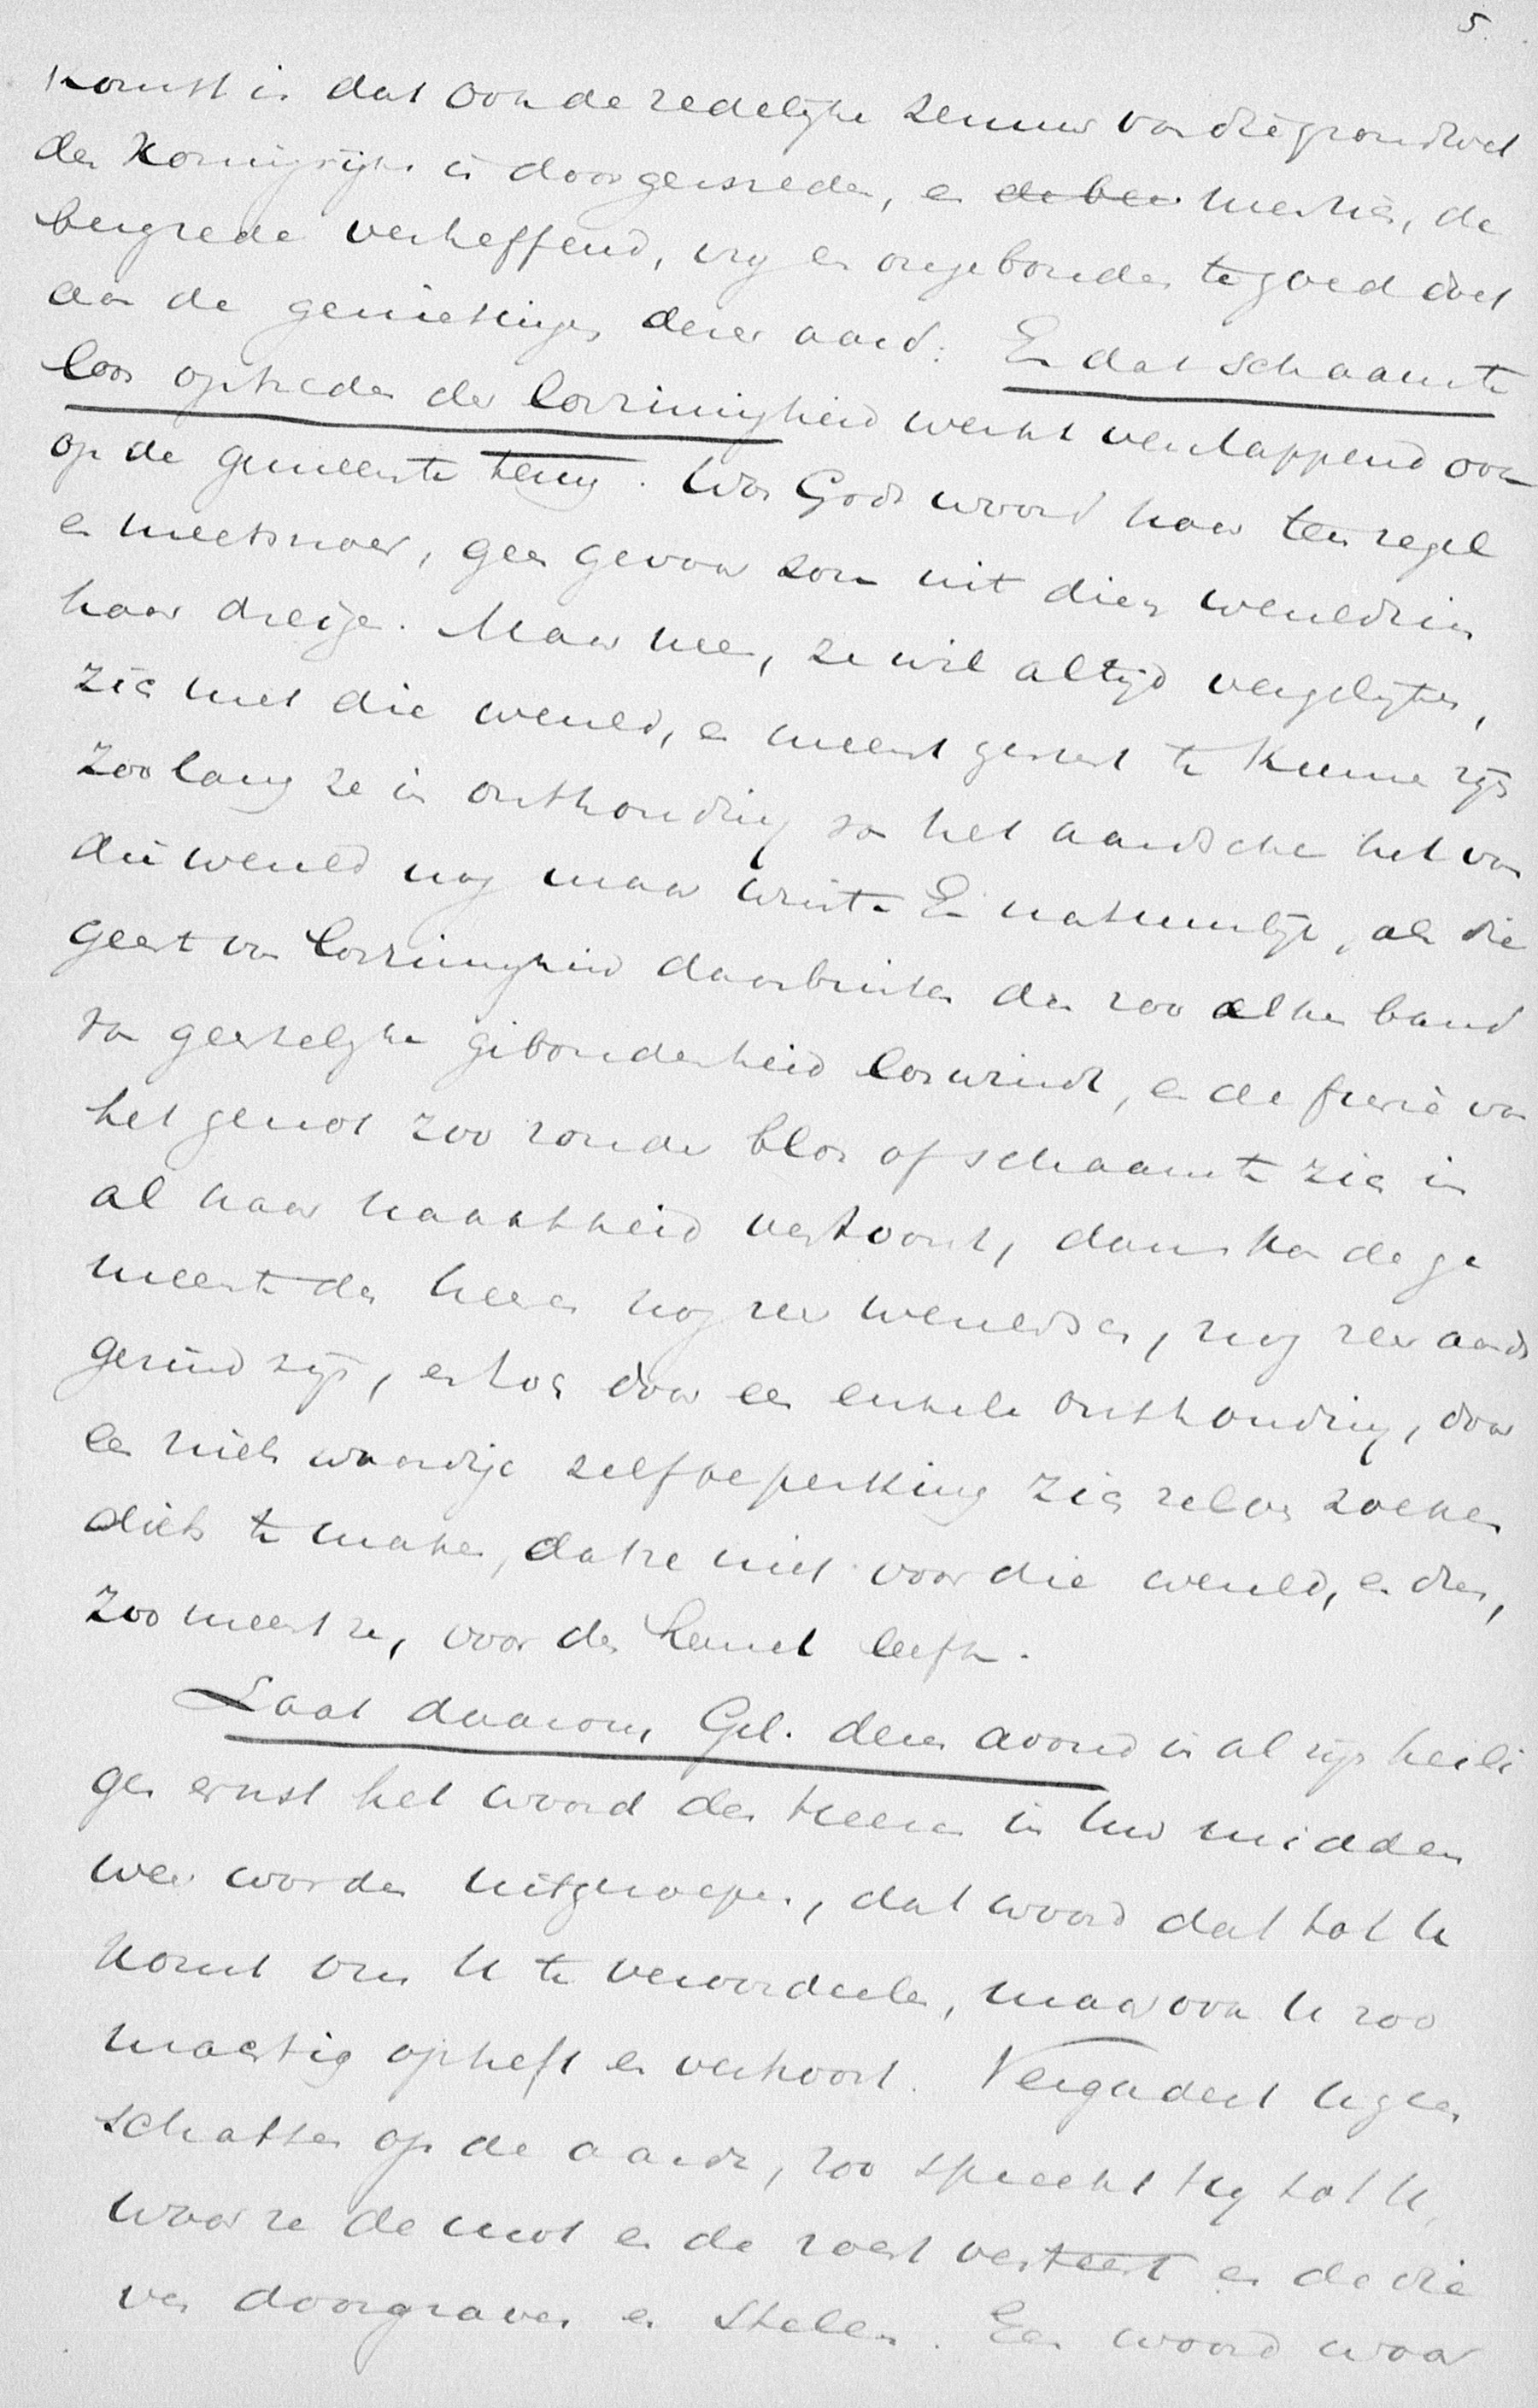 5.
komst is dat ook de zedelijke zenuw van die grondwet
des Koningrijks is doorgesneden, en de ber mensch, de
bergrede verheffend, vrij en ongebonden te goed doet
aan de genietingen dezer aard. En dat schaamte
loos optreden der loszinnigheid werkt verslappend ook
op de gemeente terug. Was Gods woord haar ten regel
en meetsnoer, geen gevaar zou uit dien wereldzin
haar dreigen. Maar neen, ze wil altijd vergelijken,
zich met die wereld, en meent gerust te kunnen zijn
zoolang ze in onthouding van het aardsche het van
die wereld nog maar wint. En natuurlijk, als die
geest van loszinnigheid daarbuiten dan zoo elken band
van geestelijke gebondenheid loswindt, en de furie van
het genot zoo zonder blos of schaamte zich in
al haar naaktheid vertoont, dan kan de ge
meente des heeren nog zeer wereldsch, nog zeer aards
gezind zijn, en toch door een enkele onthouding, door
een nietswaardige zelfbeperking zich zelve zoeken
diets te maken, dat ze niet voor die wereld, en dus,
zoo meent ze, voor den hemel leeft.
Laat daarom, Gel. dezen avond in al zijn heili
gen ernst het woord des Heeren in uw midden
weer worden uitgeroepen, dat woord dat tot U
komt om U te veroordeelen, maar ook U zoo
machtig opheft en vertroost. Vergadert U geen
schatten op de aarde, zoo spreekt hij tot U,
waar ze de mot en de roest verteert en de die
ven doorgraven en stelen. Een woord waar